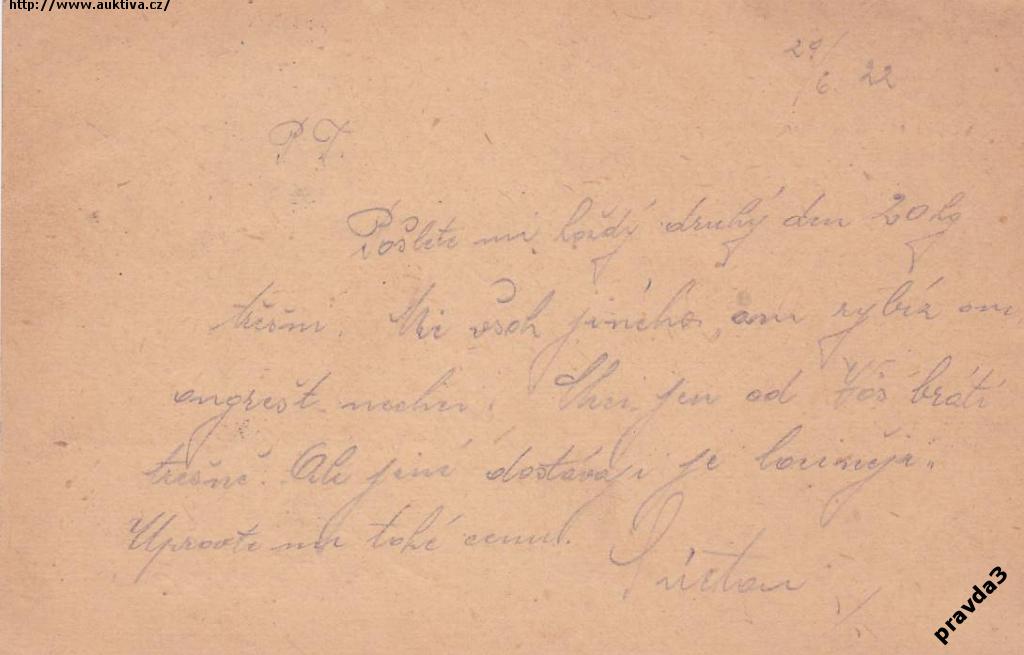 http://www.auktiva.cz/
29/6. 22
P. T.
Pošlete mi každý druhý den 20 kg
třešní. Nic však jiného, ani rybíz ani
angrešt nechci. Chci jen od Vás bráti
třešně. Ale jiní dostávají je laciněji.
Upravte mi také cenu.
S úctou
pravda3